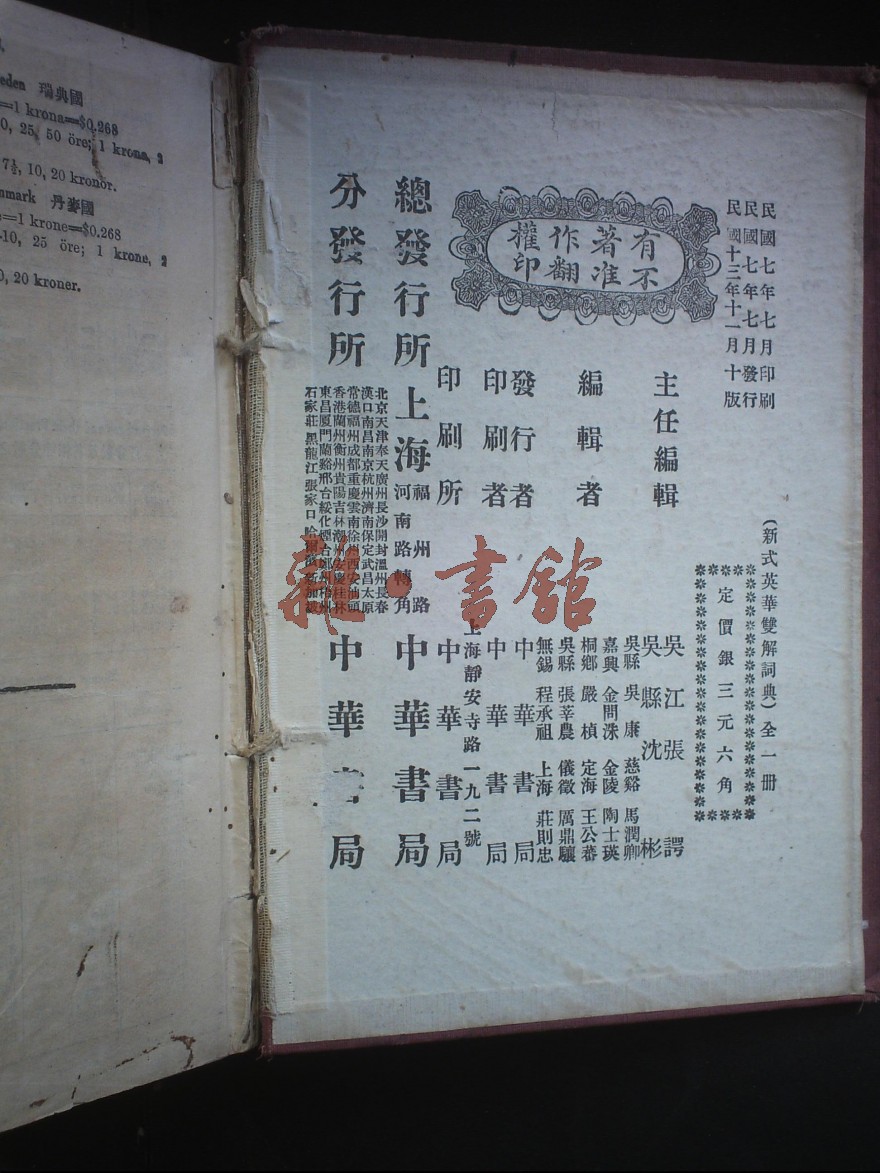 eden 瑞典國
=1 krona=$0.268
0, 25, 50 öre; 1 krona, 2
7½, 10, 20 kronor.
nmark 丹麥國
=1 krone=$0.268
-10, 25 öre; 1 krone, 2
0, 20 kroner.
民國七年七月印刷
民國七年七月發行
民國十三年十一月十版
(新式英華雙解詞典)全一冊
定價銀三元六角
有著作權
不准翻印
主任編輯
吳江張諤
吳縣沈彬
編輯者
吳縣吳康 慈谿馬潤卿
嘉興金問洙 金陵陶士瑛
桐鄉嚴楨 定海王公蕃
吳縣張莘農 儀徵厲鼎驤
無錫程承祖 上海莊則忠
發行者 中華書局
印刷者 中華書局
上海靜安寺路一九二號
印刷所 中華書局
總發行所 上海 福州路 河南路轉角 中華書局
分發行所
北京天津奉天廣州長沙開封溫州長春
漢口南昌南京杭州濟南保定武昌太原
常德福州成都重慶雲南徐州西安汕頭
香港蘭州衡州貴陽吉林潮州安慶桂林
東昌厦門蘭谿邢台綏化煙台鄭州梧州
石家莊黑龍江張家口哈爾濱新加坡
中華 局
書舘